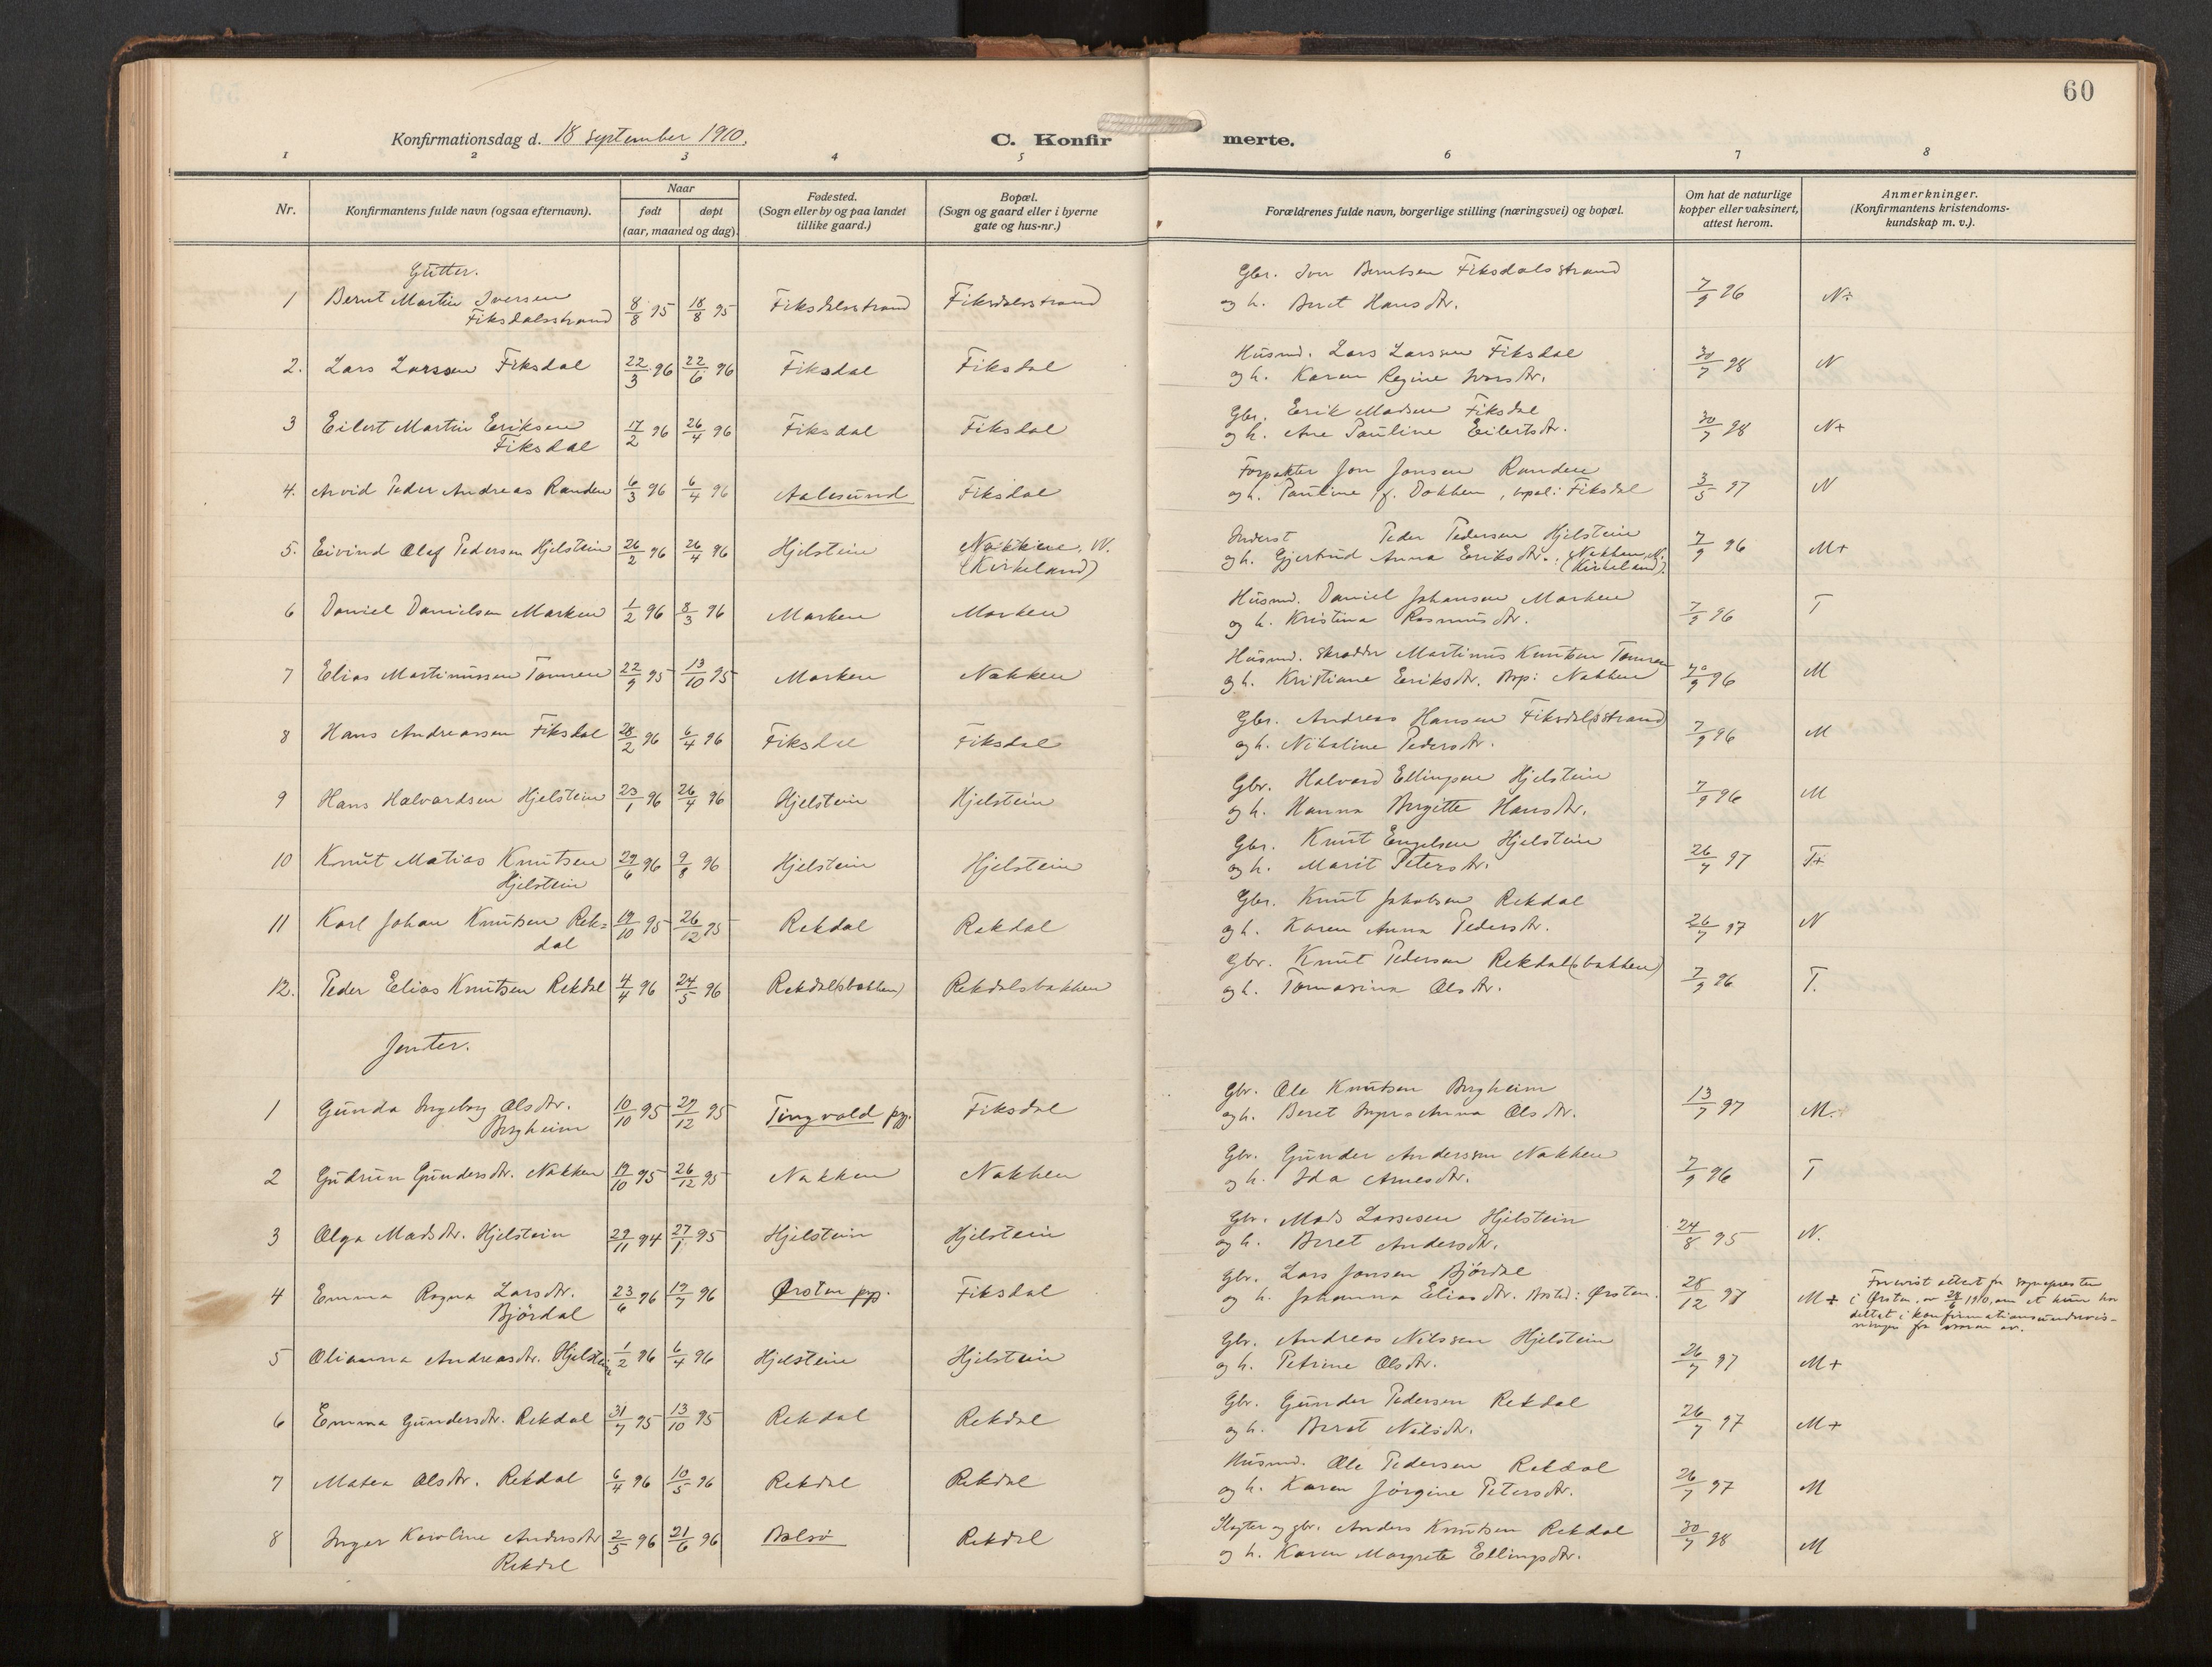 60
Konfirmationsdag d. 18 september 1910.
C. Konfirmerte.
1 2 3 4 5 6 7 8
Nr.
Konfirmantens fulde navn (ogsaa efternavn).
Naar
født døpt
(aar, maaned og dag).
Fødested.
(Sogn eller by og paa landet
tillike gaard.)
Bopæl.
(Sogn og gaard eller i byerne
gate og hus-nr.)
Forældrenes fulde navn, borgerlige stilling (næringsvei) og bopæl.
Om hat de naturlige
kopper eller vaksinert,
attest herom.
Anmerkninger.
(Konfirmantens kristendoms-
kundskap m. v.).
Gutter.
1 Bernt Martin Iversen 8/8 95 18/8 95 Fiksdalsstrand Fiksdalsstrand Gbr. Iver Berntsen Fiksdalsstrand 7/9 96 N÷
Fiksdalsstrand og h. Beret Hansdtr.
2. Lars Larssen Fiksdal 22/3 96 22/6 96 Fiksdal Fiksdal Husmd. Lars Larssen Fiksdal 30/7 98 N
og h. Karen Regine Iversdtr.
3 Eilert Martin Eriksen 17/2 96 26/4 96 Fiksdal Fiksdal Gbr. Erik Madsen Fiksdal 30/7 98 N+
Fiksdal og h. Ane Pauline Eilertsdtr.
4. Arvid Peder Andreas Randen 6/3 96 6/4 96 Aalesund Fiksdal Forpakter Jon Jonsen Randen 3/5 97 N
og h. Pauline f. Dokken, bopæl: Fiksdal
5. Eivind Olaf Pedersen Hjelstein 26/2 96 26/4 96 Hjelstein Nakkene, V. Inderst Peder Pedersen Hjelstein 7/9 96 M+
(Kirkeland) og h. Gjertrud Anna Eriksdtr.: Nakken,
(Kirkeland).
6 Daniel Danielsen Marken 1/2 96 8/3 96 Marken Marken Husmd. Daniel Johansen Marken 7/9 96 T
og h. Kristina Rasmusdtr.
7 Elias Martinussen Tomren 22/9 95 13/10 95 Marken Nakken Husmd. skrædder Martinus Knutsen Tomren 96 M
og h. Kristiane Eriksdtr. Bop: Nakken
8 Hans Andreassen Fiksdal 28/2 96 6/4 96 Fiksdal Fiksdal Gbr. Andreas Hansen Fiksdal(sstrand) 7/9 96 M
og h. Nikoline Pedersdtr.
9 Hans Halvardsen Hjelstein 23/1 96 26/4 96 Hjelstein Hjelstein Gbr. Halvard Ellingsen Hjelstein 7/9 96 M
og h. Hanna Bergitte Hansdtr.
10 Knut Matias Knutsen 29/6 96 9/8 96 Hjelstein Hjelstein Gbr. Knut Engelsen Hjelstein 26/7 97 T+
Hjelstein og h. Marit Petersdtr.
11 Karl Johan Knutsen Rek= 19/10 95 26/12 95 Rekdal Rekdal Gbr. Knut Jakobsen Rekdal 26/7 97 N
dal og h. Karen Anna Pedersdtr.
12. Peder Elias Knutsen Rekdal 4/4 96 24/5 96 Rekdal(sbakken) Rekdalsbakken Gbr. Knut Pedersen Rekdal(sbakken) 7/9 96 T.
og h. Tomasina Olsdtr.
Jenter.
1 Gunda Ingeborg Olsdtr. 10/10 95 29/12 95 Tingvold pgj. Fiksdal Gbr. Ole Knutsen Bergheim 13/7 97 M.
Bergheim og h. Beret Anna Olsdtr.
2 Gudrun Gundersdtr. Nakken 19/10 95 26/12 95 Nakken Nakken Gbr. Gunder Anderssen Nakken 7/9 96 T
og h. Ida Arnesdtr.
3 Olga Madsdtr. Hjelstein 29/11 94 27/1 95 Hjelstein Hjelstein Gbr. Mads Lassesen Hjelstein 24/8 95 N.
og h. Beret Andersdtr.
4 Emma Ragna Larsdtr. 23/6 96 19/7 96 Ørsten pgj. Fiksdal Gbr. Lars Jonsen Bjørdal 28/12 97 M+ Forevist attest fra sognepresten
Bjørdal og h. Johanna Eliasdtr. Bosted: Ørsten. i Ørsten, av 24/6 1910, om at hun har
deltat i konfirmationsundervis-
ningen fra av.
5 Olianna Andreasdtr. Hjelstein 1/2 96 6/4 96 Hjelstein Hjelstein Gbr. Andreas Nilssen Hjelstein 26/7 97 M+
og h. Petrine Olsdtr.
6 Emma Gundersdtr. Rekdal 31/7 95 13/10 95 Rekdal Rekdal Gbr. Gunder Pedersen Rekdal 26/7 97 M+
og h. Beret Nilsdtr.
7 Matea Olsdtr. Rekdal 6/4 96 10/5 96 Rekdal Rekdal Husmd. Ole Pedersen Rekdal 26/7 97 M
og h. Karen Jørgine Petersdtr.
8 Inger Karoline Andersdtr 2/5 96 21/6 96 Bolsø Rekdal Slagter og gbr. Anders Knutsen Rekdal 30/7 98 M
Rekdal og h. Karen Margrete Ellingsdtr.